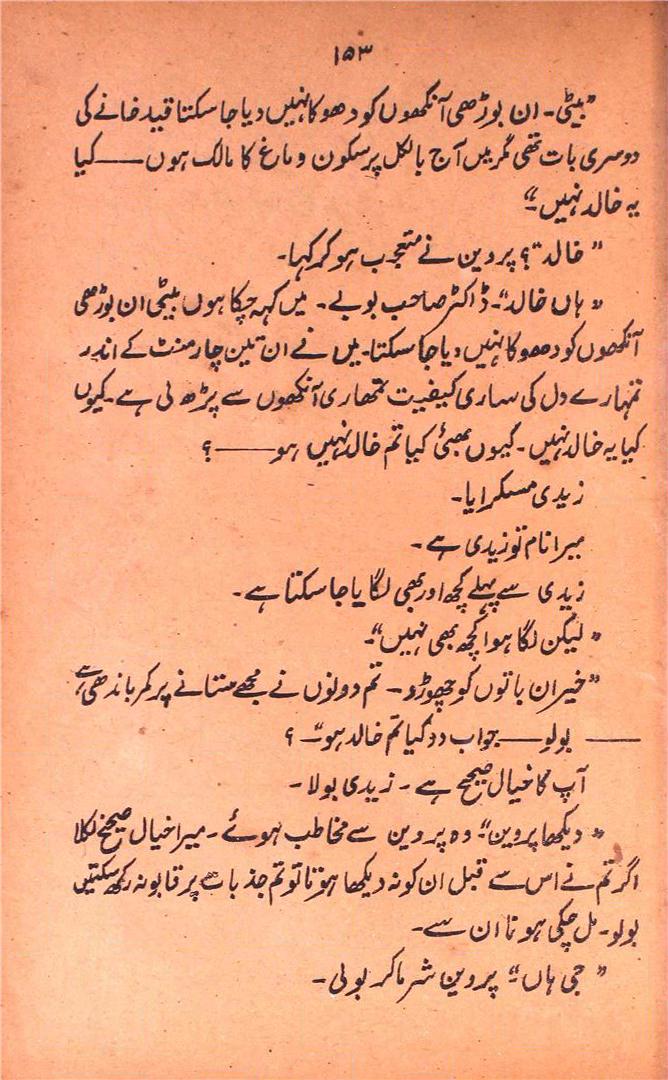 ۱۵۳
"بیٹی۔ ان بوڑھی آنکھوں کو دھوکا نہیں دیا جا سکتا قید خانے کی
دوسری بات تھی مگر میں آج بالکل پرسکون دماغ کا مالک ہوں —— کیا
یہ خالد نہیں۔"
"خالد"؟ پروین نے متعجب ہو کر کہا۔
"ہاں خالد"۔ ڈاکٹر صاحب بولے۔ میں کہہ چکا ہوں بیٹی ان بوڑھی
آنکھوں کو دھوکا نہیں دیا جا سکتا۔ میں نے ان تین چار منٹ کے اندر
تمہارے دل کی ساری کیفیت تمھاری آنکھوں سے پڑھ لی ہے۔ کیوں
کیا یہ خالد نہیں۔ کیوں بھئی کیا تم خالد نہیں ہو —— ؟
زیدی مسکرایا۔
میرا نام تو زیدی ہے۔
زیدی سے پہلے کچھ اور بھی لگایا جا سکتا ہے۔
"لیکن لگا ہوا کچھ بھی نہیں"۔
"خیر ان باتوں کو چھوڑو۔ تم دونوں نے مجھے ستانے پر کمر باندھی ہے
—— بولو —— جواب دو کیا تم خالد ہو"۔ ؟
آپ کا خیال صحیح ہے۔ زیدی بولا۔
"دیکھا پروین"۔ وہ پروین سے مخاطب ہوئے۔ میرا خیال صحیح نکلا
اگر تم نے اس سے قبل ان کو نہ دیکھا ہوتا تو تم جذبات پر قابو نہ رکھ سکتیں
بولو۔ مل چکی ہو نا ان سے۔
"جی ہاں"۔ پروین شرما کر بولی۔